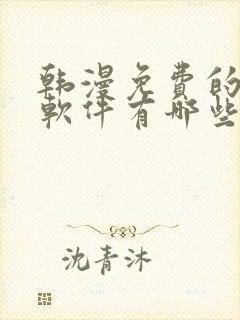 韩漫免費的
軟件有哪些
沈青沐